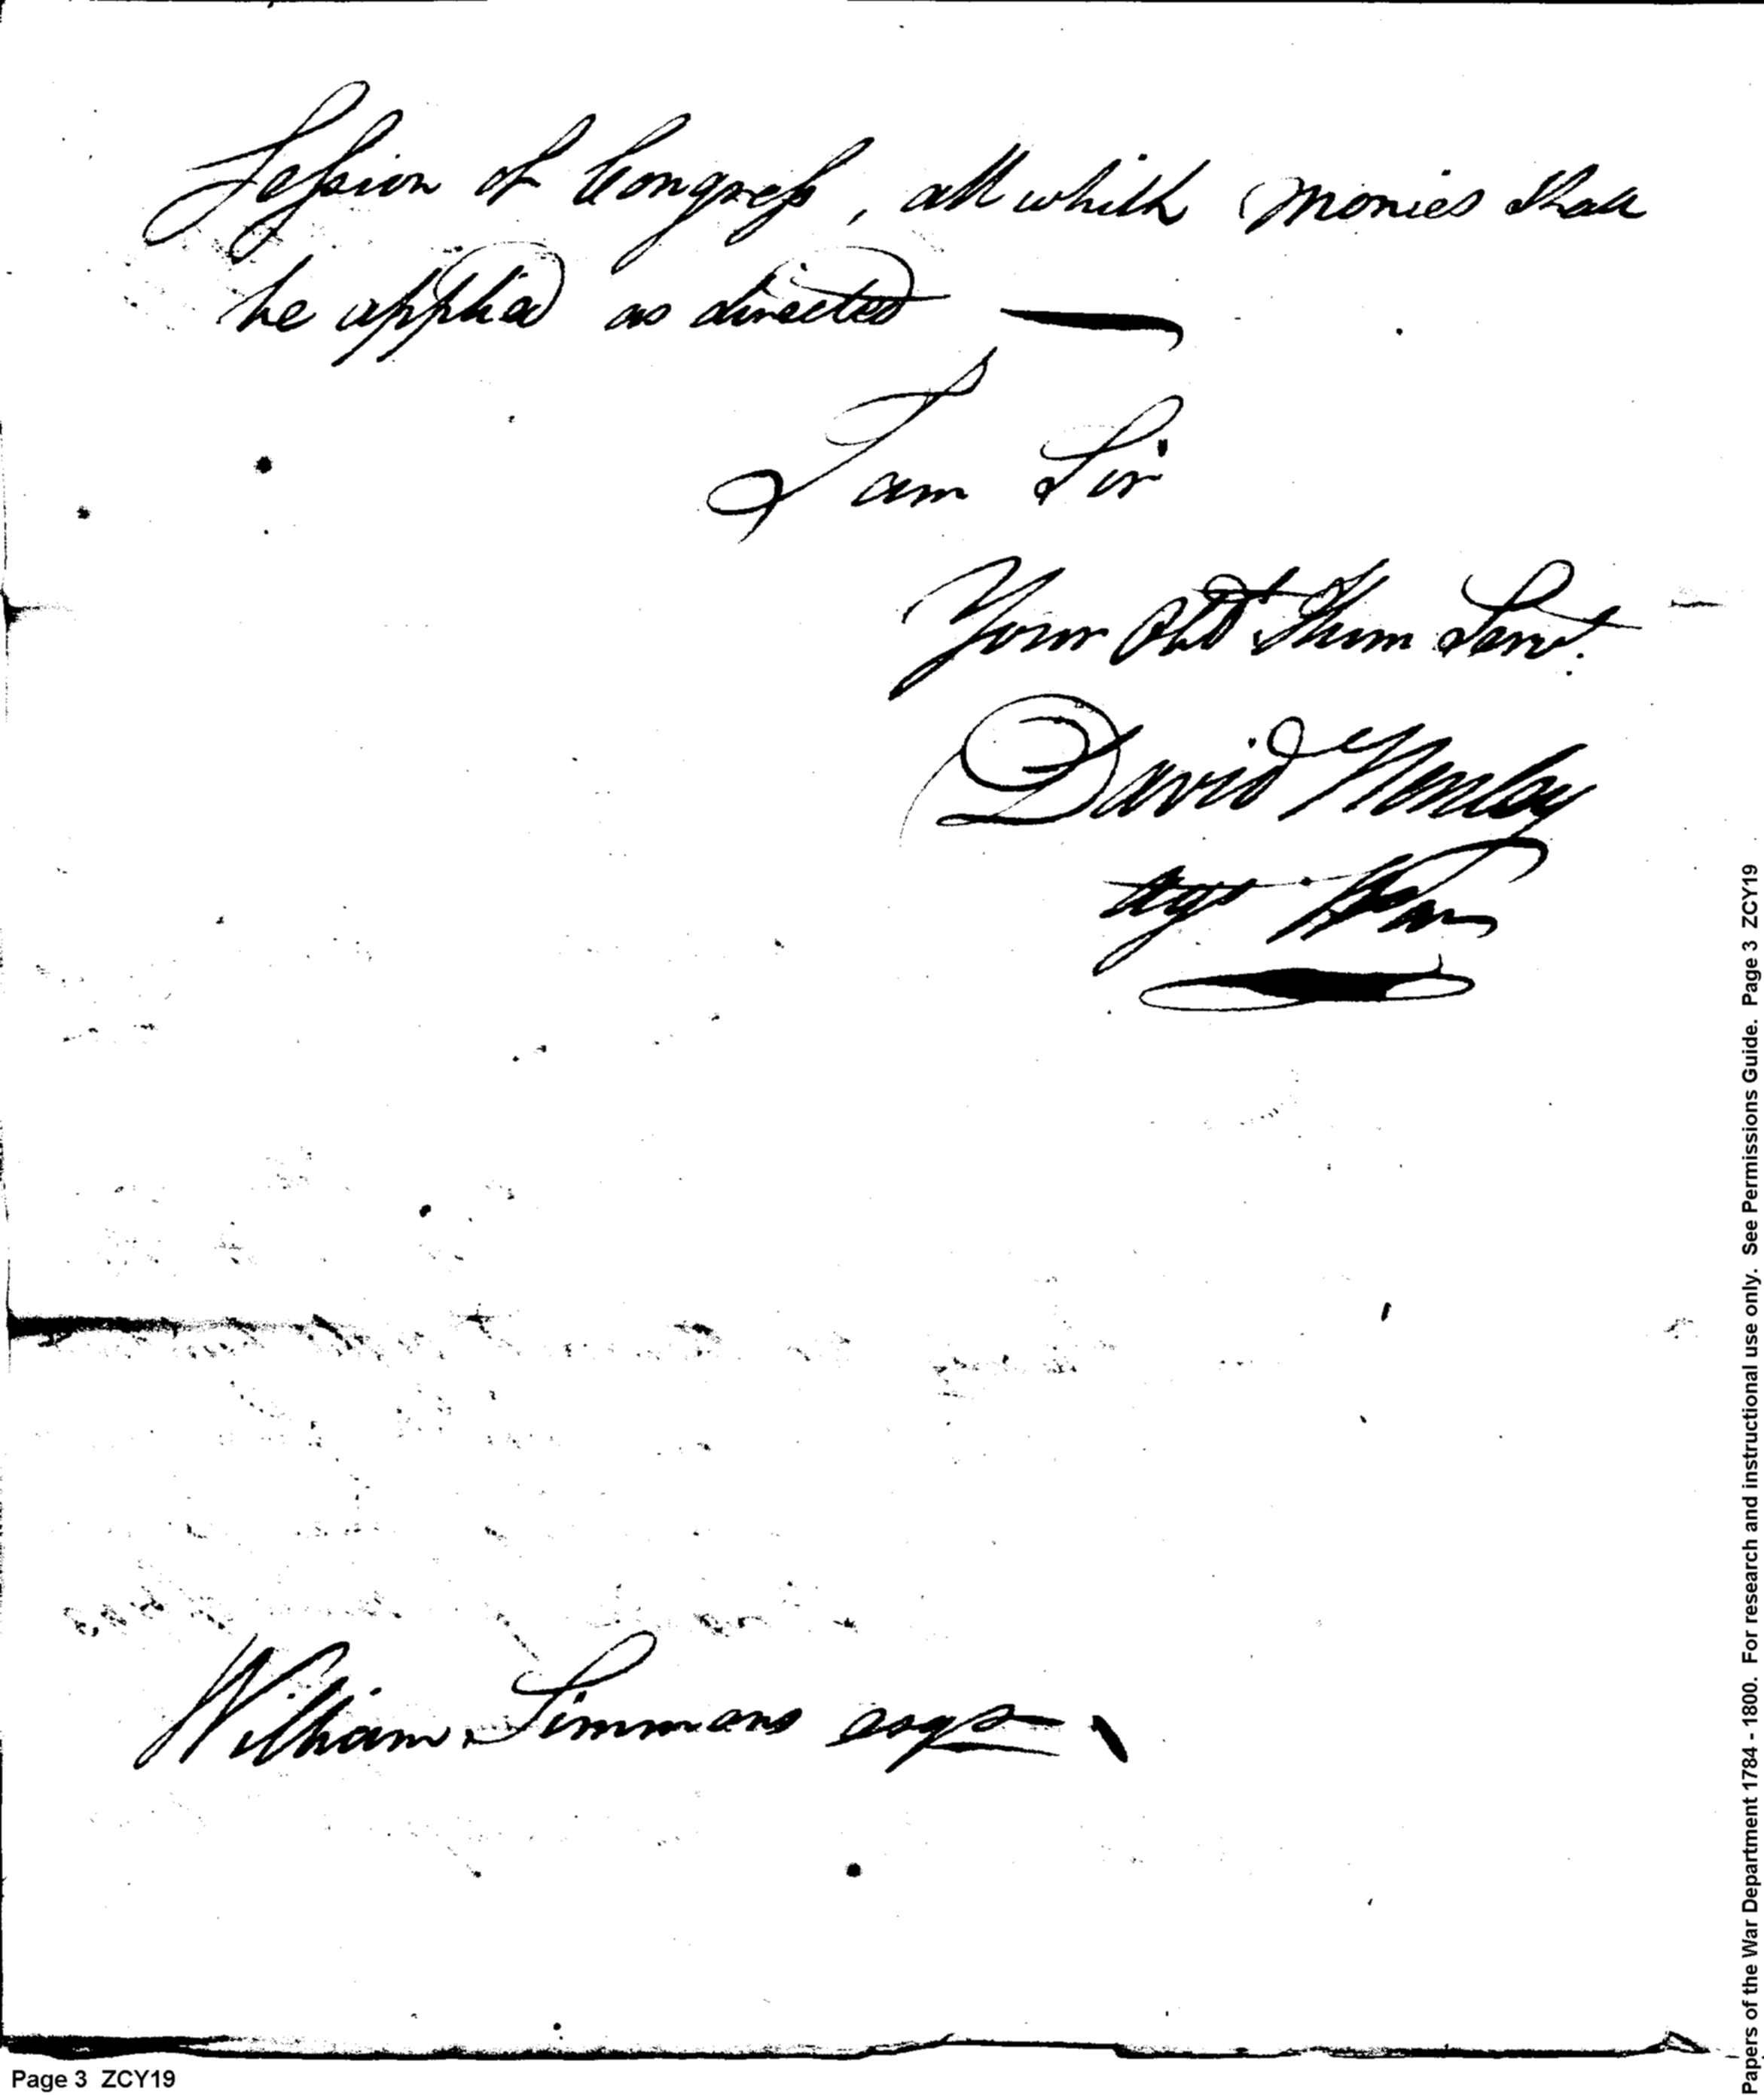 Session of Congress, all which monies shall
be applied as directed —
I am Sir
Your Obt Hum Servt.
David Henley
Agt
William Simmons esqr
Page 3 ZCY19
Papers of the War Department 1784 - 1800. For research and instructional use only. See Permissions Guide. Page 3 ZCY19